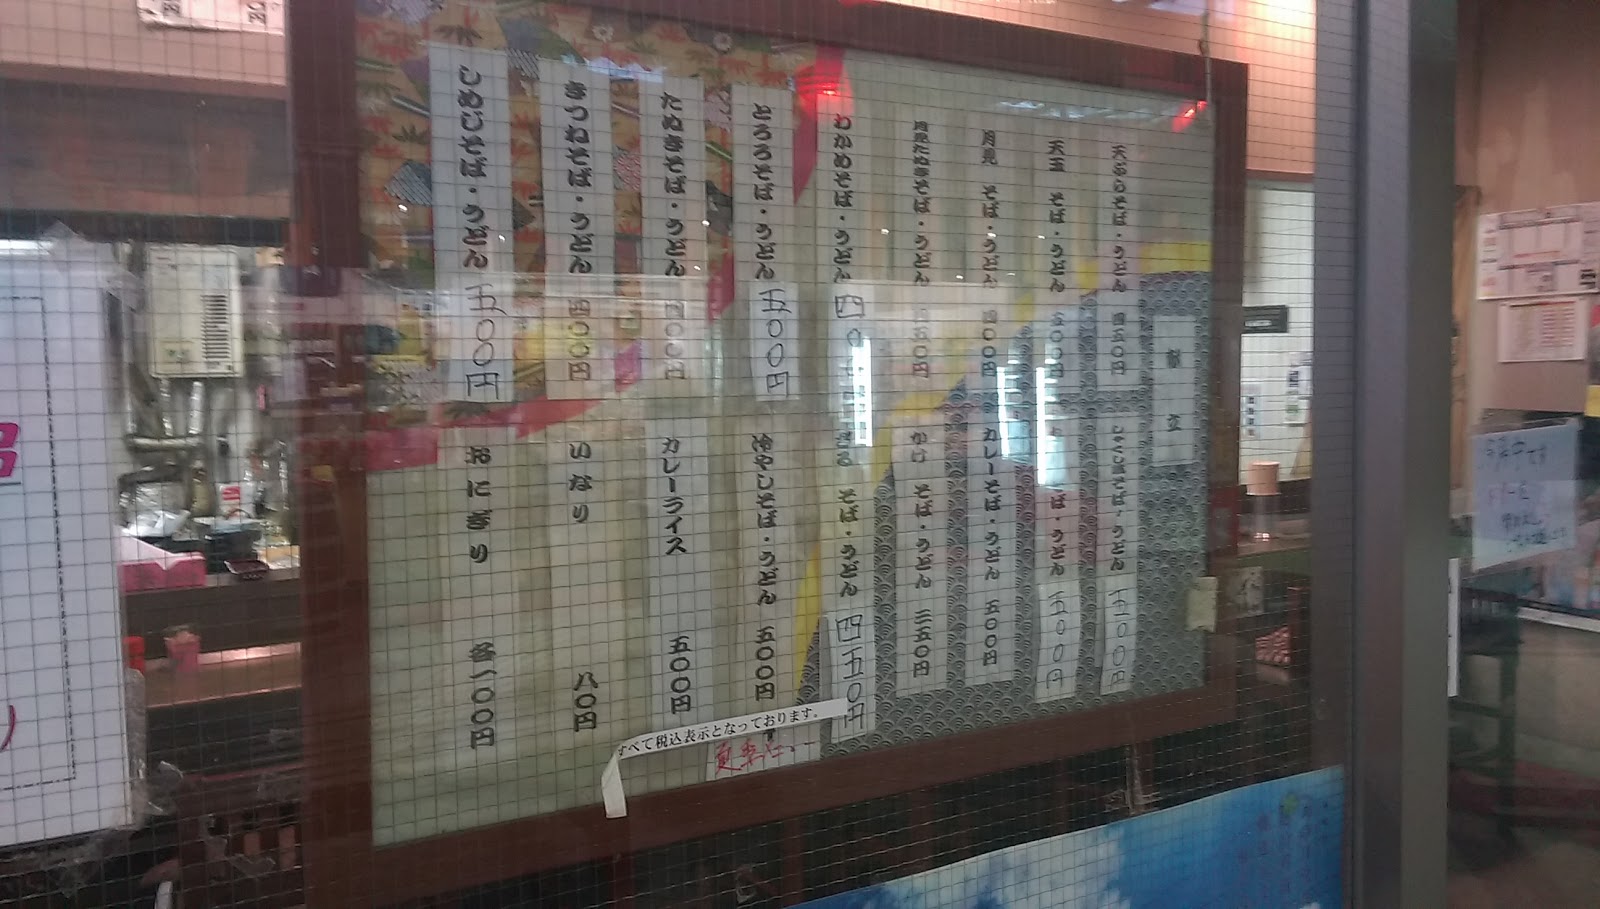 献立
天ぷらそば・うどん 四五〇円
天玉 そば・うどん 五〇〇円
月見 そば・うどん 四〇〇円
月見たぬきそば・うどん 四五〇円
わかめそば・うどん 四
とろろそば・うどん 五〇〇円
たぬきそば・うどん 四〇〇円
きつねそば・うどん 四〇〇円
しめじそば・うどん 五〇〇円
そば・うどん 五〇〇円
そば・うどん 五〇〇円
カレーそば・うどん 五〇〇円
かけ そば・うどん 三五〇円
ざる そば・うどん 四五〇円
冷やしそば・うどん 五〇〇円
カレーライス 五〇〇円
いなり 八〇円
おにぎり 各一〇〇円
すべて税込表示となっております。